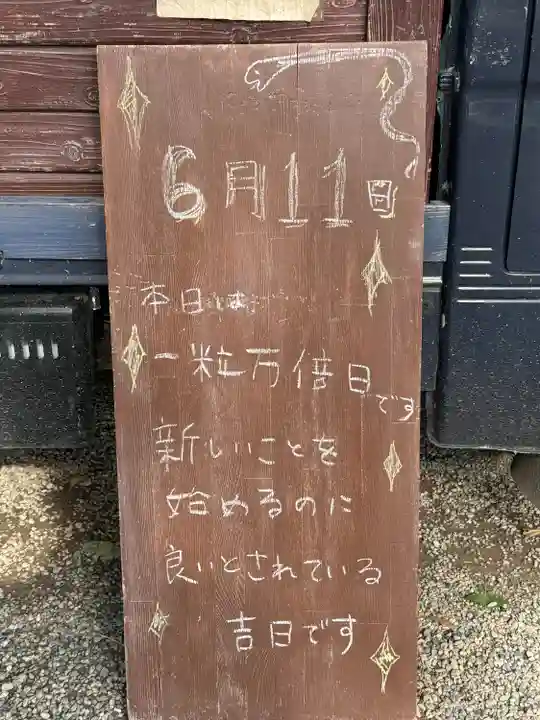 6月11日
本日は
一粒万倍日です
新しいことを
始めるのに
良いとされている
吉日です